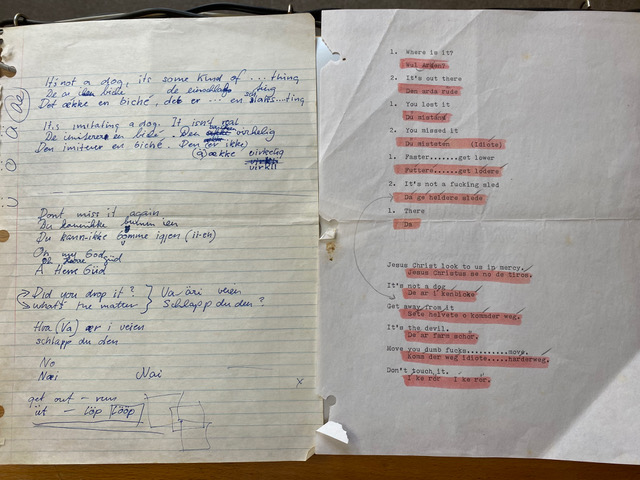 It's not a dog, it's some kind of .... thing
De ække en biché, der er ... en slags...ting
It's imitating a dog. It isn't real
De imiterer en biché. Den virkelig
Den imiterer en biché. Den (er ikke)
ække virkelig
ü ö a De
Dont miss it again
Du kann-ikke bömme igjen (ii-eh)
Oh my God
Å Herre Güd
Did you drop it? } Va äri veien
What's the matter } Schlapp du den?
Hva (Va) ær i veien
schlapp du den
No
Næi Nai
x
get out - run
üt - löp Lööp
1. Where is it?
2. It's out there
Den arda rude
1. You lost it
Du mistand
2. You missed it
Du misteten (Idiote)
1. Faster......get lower
Futtere....get lodere
2. It's not a fucking sled
Da ge heidere slede
1. There
Da
Jesus Christ look to us in mercy.
Jesus Christus se no de tiros.
It's not a dog
De ar i kenuioke
Get away from it
Sete halvete o kommder weg.
It's the devil.
De ar farn schor.
Move you dumb fucks..........move.
Komm der weg idiote.....harderweg.
Don't touch it.
I ke rör I ke rör.